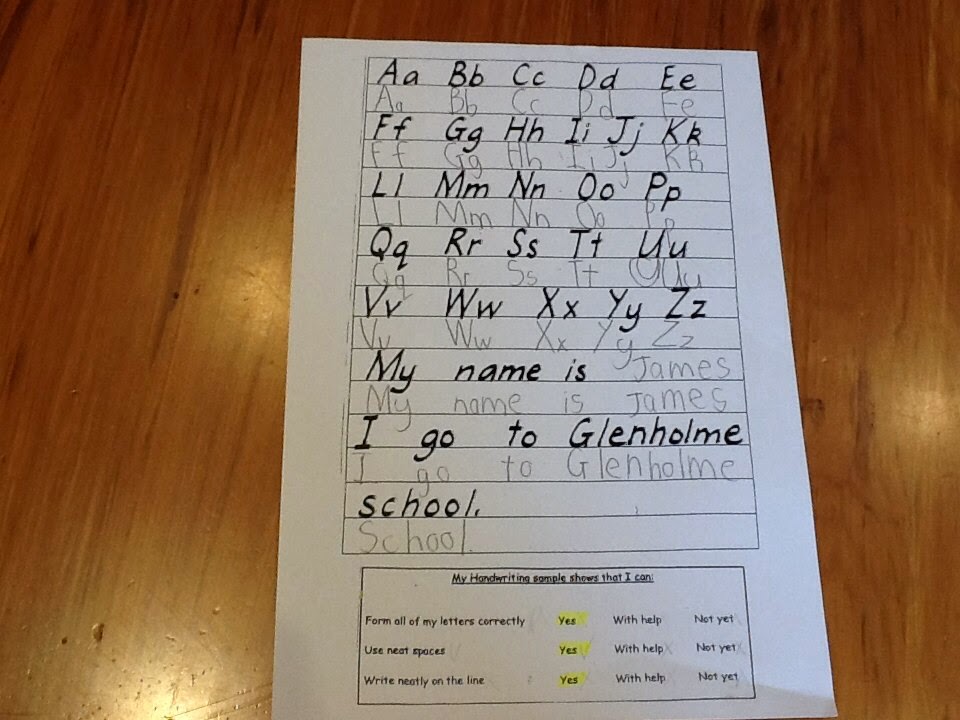 Aa Bb Cc Dd Ee
Aa Bb Cc Dd Ee
Ff Gg Hh Ii Jj Kk
Ff Gg Hh Ii Jj Kk
Ll Mm Nn Oo Pp
Ll Mm Nn Oo Pp
Qq Rr Ss Tt Uu
Qq Rr Ss Tt UUu
Vv Ww Xx Yy Zz
Vv Ww Xx Yy Zz
My name is James
My name is James
I go to Glenholme
I go to Glenholme
school.
School.
My Handwriting sample shows that I can:
Form all of my letters correctly Yes With help Not yet
Use neat spaces Yes With help Not yet
Write neatly on the line Yes With help Not yet